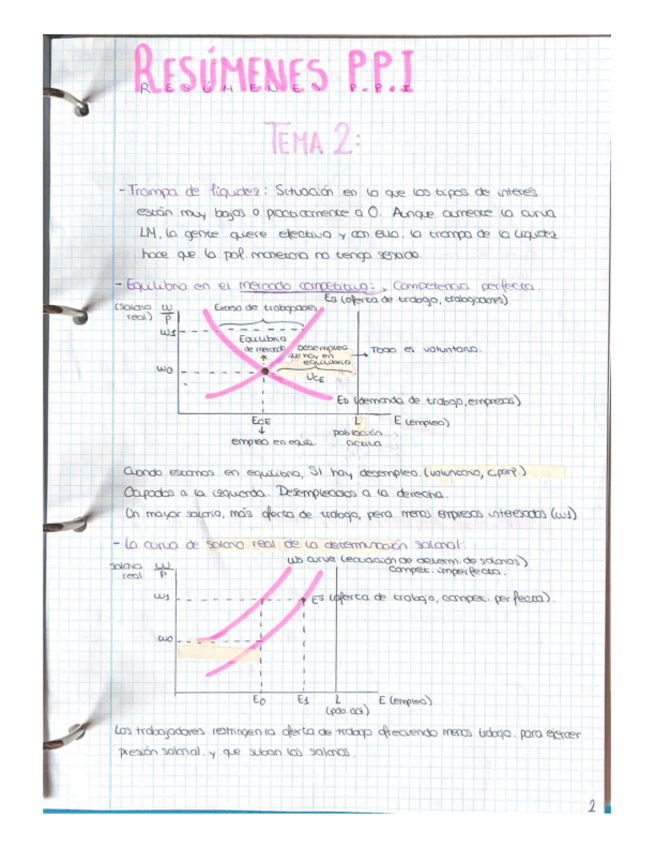 RESÚMENES P.P.I
RESÚMENES P.P.I
TEMA 2:
- Trampa de liquidez: Situación en la que los tipos de interés
están muy bajos o practicamente a 0. Aunque aumente la curva
LM, la gente quiere efectivo y con ello, la trampa de la liquidez
hace que la pol. monetaria no tenga sentido.
- Equilibrio en el mercado competitivo:, Competencia perfecta.
(salario real) W/P
Exceso de trabajadores
Es (oferta de trabajo, trabajadores)
W1
Equilibrio de mercado
Desempleo que hay en equilibrio
→ Todo es voluntario.
W0
UCE
ED (demanda de trabajo, empresas)
ECE
L
E (empleo)
empleo en equi.
población activa
Cuando estamos en equilibrio, SI hay desempleo. (voluntario, c.perf.)
Ocupados a la izquierda. Desempleados a la derecha.
Un mayor salario, más oferta de trabajo, pero menos empresas interesadas (W1)
- La curva de salario real de la determinación salarial:
salario real W/P
Ws curve (ecuación de determ. de salarios)
Compet. imperfecta.
W1
Es (oferta de trabajo, compet. perfecta).
W0
E0
E1
L
E (empleo)
(pob. act)
Los trabajadores restringen la oferta de trabajo ofreciendo menos trabajo, para ejercer
presión salarial, y que suban los salarios.
2